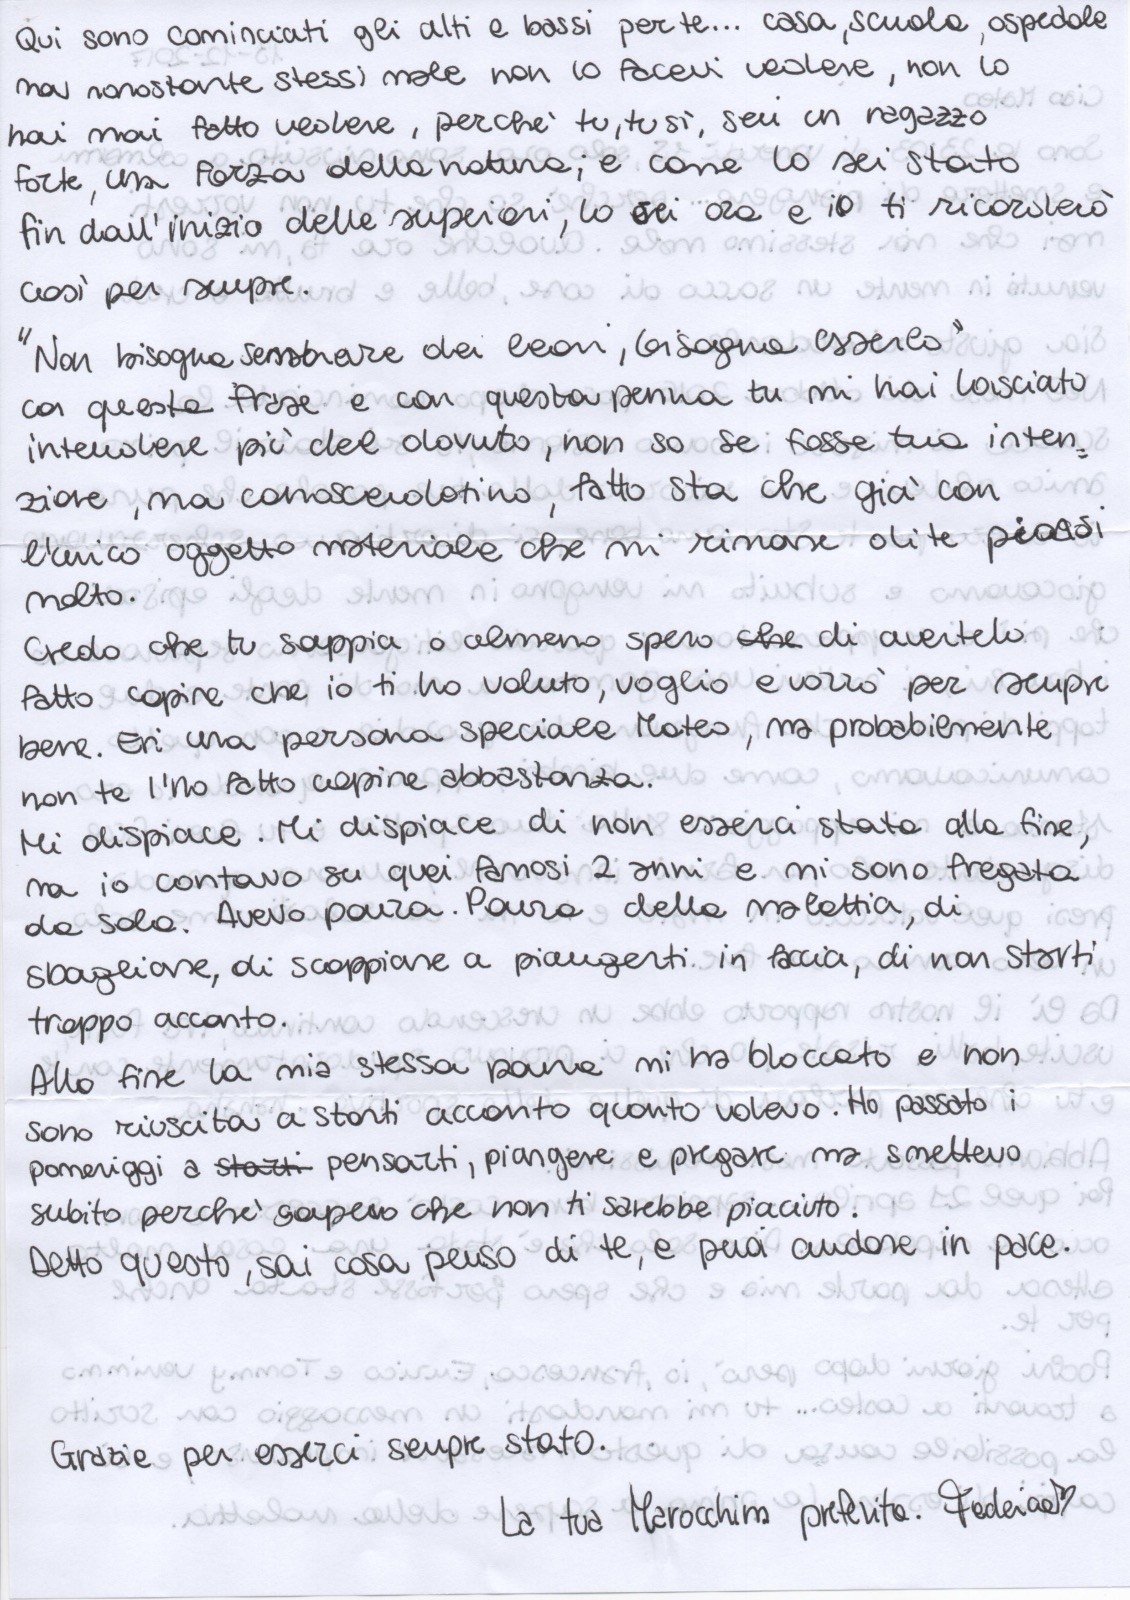 Qui sono cominciati gli alti e bassi per te... casa, scuola, ospedale
ma nonostante stessi male non lo facevi vedere, non lo
hai mai fatto vedere, perchè tu, tu sì, sei un ragazzo
forte, una forza della natura; e come lo sei stato
fin dall'inizio delle superiori, lo sei ora e io ti ricorderò
così per sempre.
"Non bisogna sembrare dei leoni, bisogna esserlo"
con questa frase e con questa penna tu mi hai lasciato
intendere più del dovuto, non so se fosse tua inten=
zione, ma conoscendotino, fatto sta che già con
l'unico oggetto materiale che mi rimane di te piansi
molto.
Credo che tu sappia o almeno spero che di avertelo
fatto capire che io ti ho voluto, voglio e vorrò per sempre
bene. Eri una persona speciale Mateo, ma probabilmente
non te l'ho fatto capire abbastanza..
Mi dispiace. Mi dispiace di non esserci stata alla fine,
ma io contavo su quei famosi 2 anni e mi sono fregata
da sola. Avevo paura. Paura della malattia, di
sbagliare, di scoppiare a piangerti in faccia, di non starti
troppo accanto.
Alla fine la mia stessa paura mi ha bloccato e non
sono riuscita a starti accanto quanto volevo. Ho passato i
pomeriggi a starti pensarti, piangere e pregare ma smettevo
subito perchè sapevo che non ti sarebbe piaciuto.
Detto questo, sai cosa penso di te, e puoi andare in pace.
Grazie per esserci sempre stato.
La tua Marocchina preferita. Federica